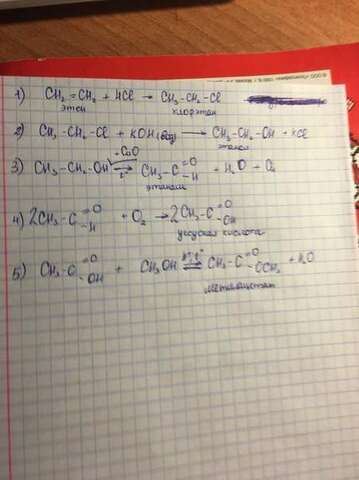 1) CH₂ = CH₂ + HCl → CH₃-CH₂-Cl
этен хлорэтан
2) CH₃-CH₂-Cl + KOH (вод) → CH₃-CH₂-OH + KCl
этанол
3) CH₃-CH₂-OH +CuO ⇄ t° CH₃-C =O -H + H₂O +
этаналь
4) 2CH₃-C =O -H + O₂ → 2CH₃-C =O -OH
уксусная кислота
5) CH₃-C =O -OH + CH₃OH ⇄ CH₃-C =O -OCH₃ + H₂O
метилацетат